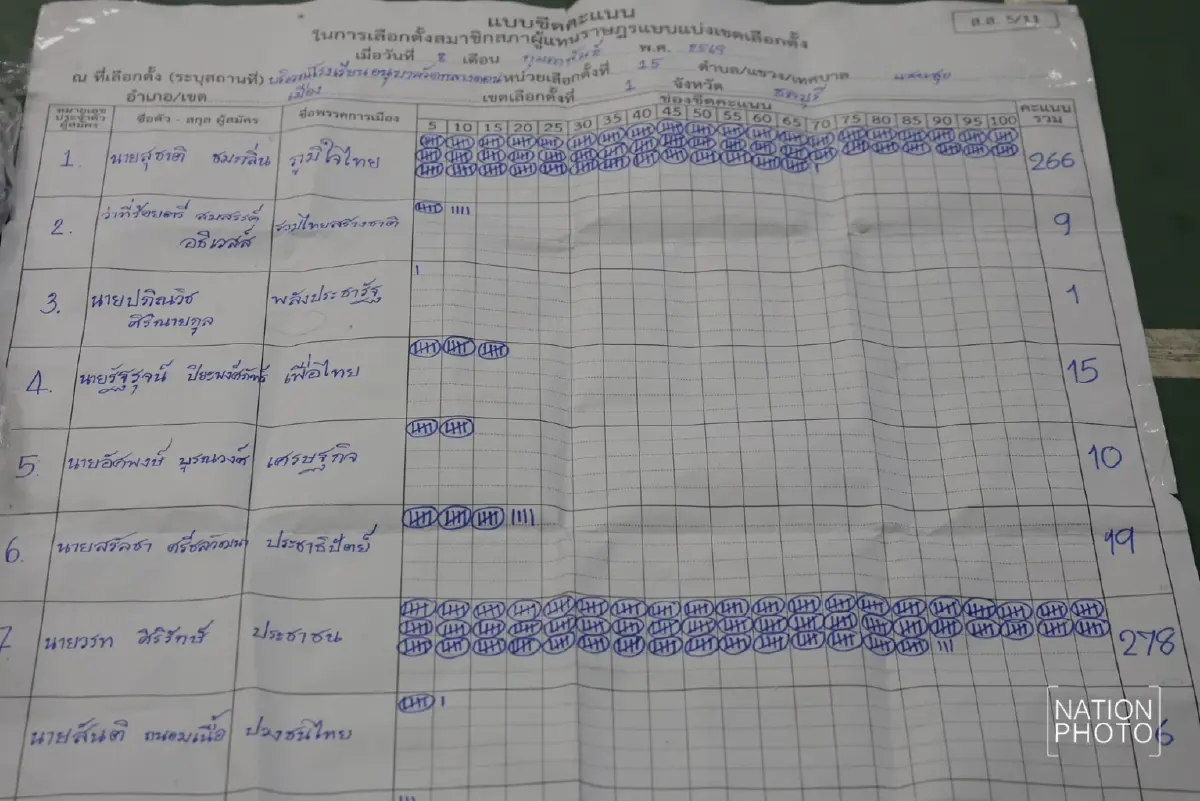 แบบขีดคะแนน
ส.ส. 5/11
ในการเลือกตั้งสมาชิกสภาผู้แทนราษฎรแบบแบ่งเขตเลือกตั้ง
เมื่อวันที่ 8 เดือน กุมภาพันธ์ พ.ศ. 2569
ณ ที่เลือกตั้ง (ระบุสถานที่) บริเวณโรงเรียนอนุบาลวัดกลางดอน หน่วยเลือกตั้งที่ 15 ตำบล/แขวง/เทศบาล แสนสุข
อำเภอ/เขต เมือง เขตเลือกตั้งที่ 1 จังหวัด ชลบุรี
หมายเลขประจำตัวผู้สมัคร ชื่อตัว - สกุล ผู้สมัคร ชื่อพรรคการเมือง ช่องขีดคะแนน คะแนนรวม
5 10 15 20 25 30 35 40 45 50 55 60 65 70 75 80 85 90 95 100
1. นายสุชาติ ชมกลิ่น ภูมิใจไทย 266
2. ว่าที่ร้อยตรี สมสรรค์ รวมไทยสร้างชาติ 9
3. พลังประชารัฐ 1
4. เพื่อไทย 15
5. เศรษฐกิจ 10
6. ประชาธิปัตย์ 19
7 นายวรท ศิริรักษ์ ประชาชน 278
นายสันติ ถนอมเนื้อ ปวงชนไทย 6
NATION
PHOTO